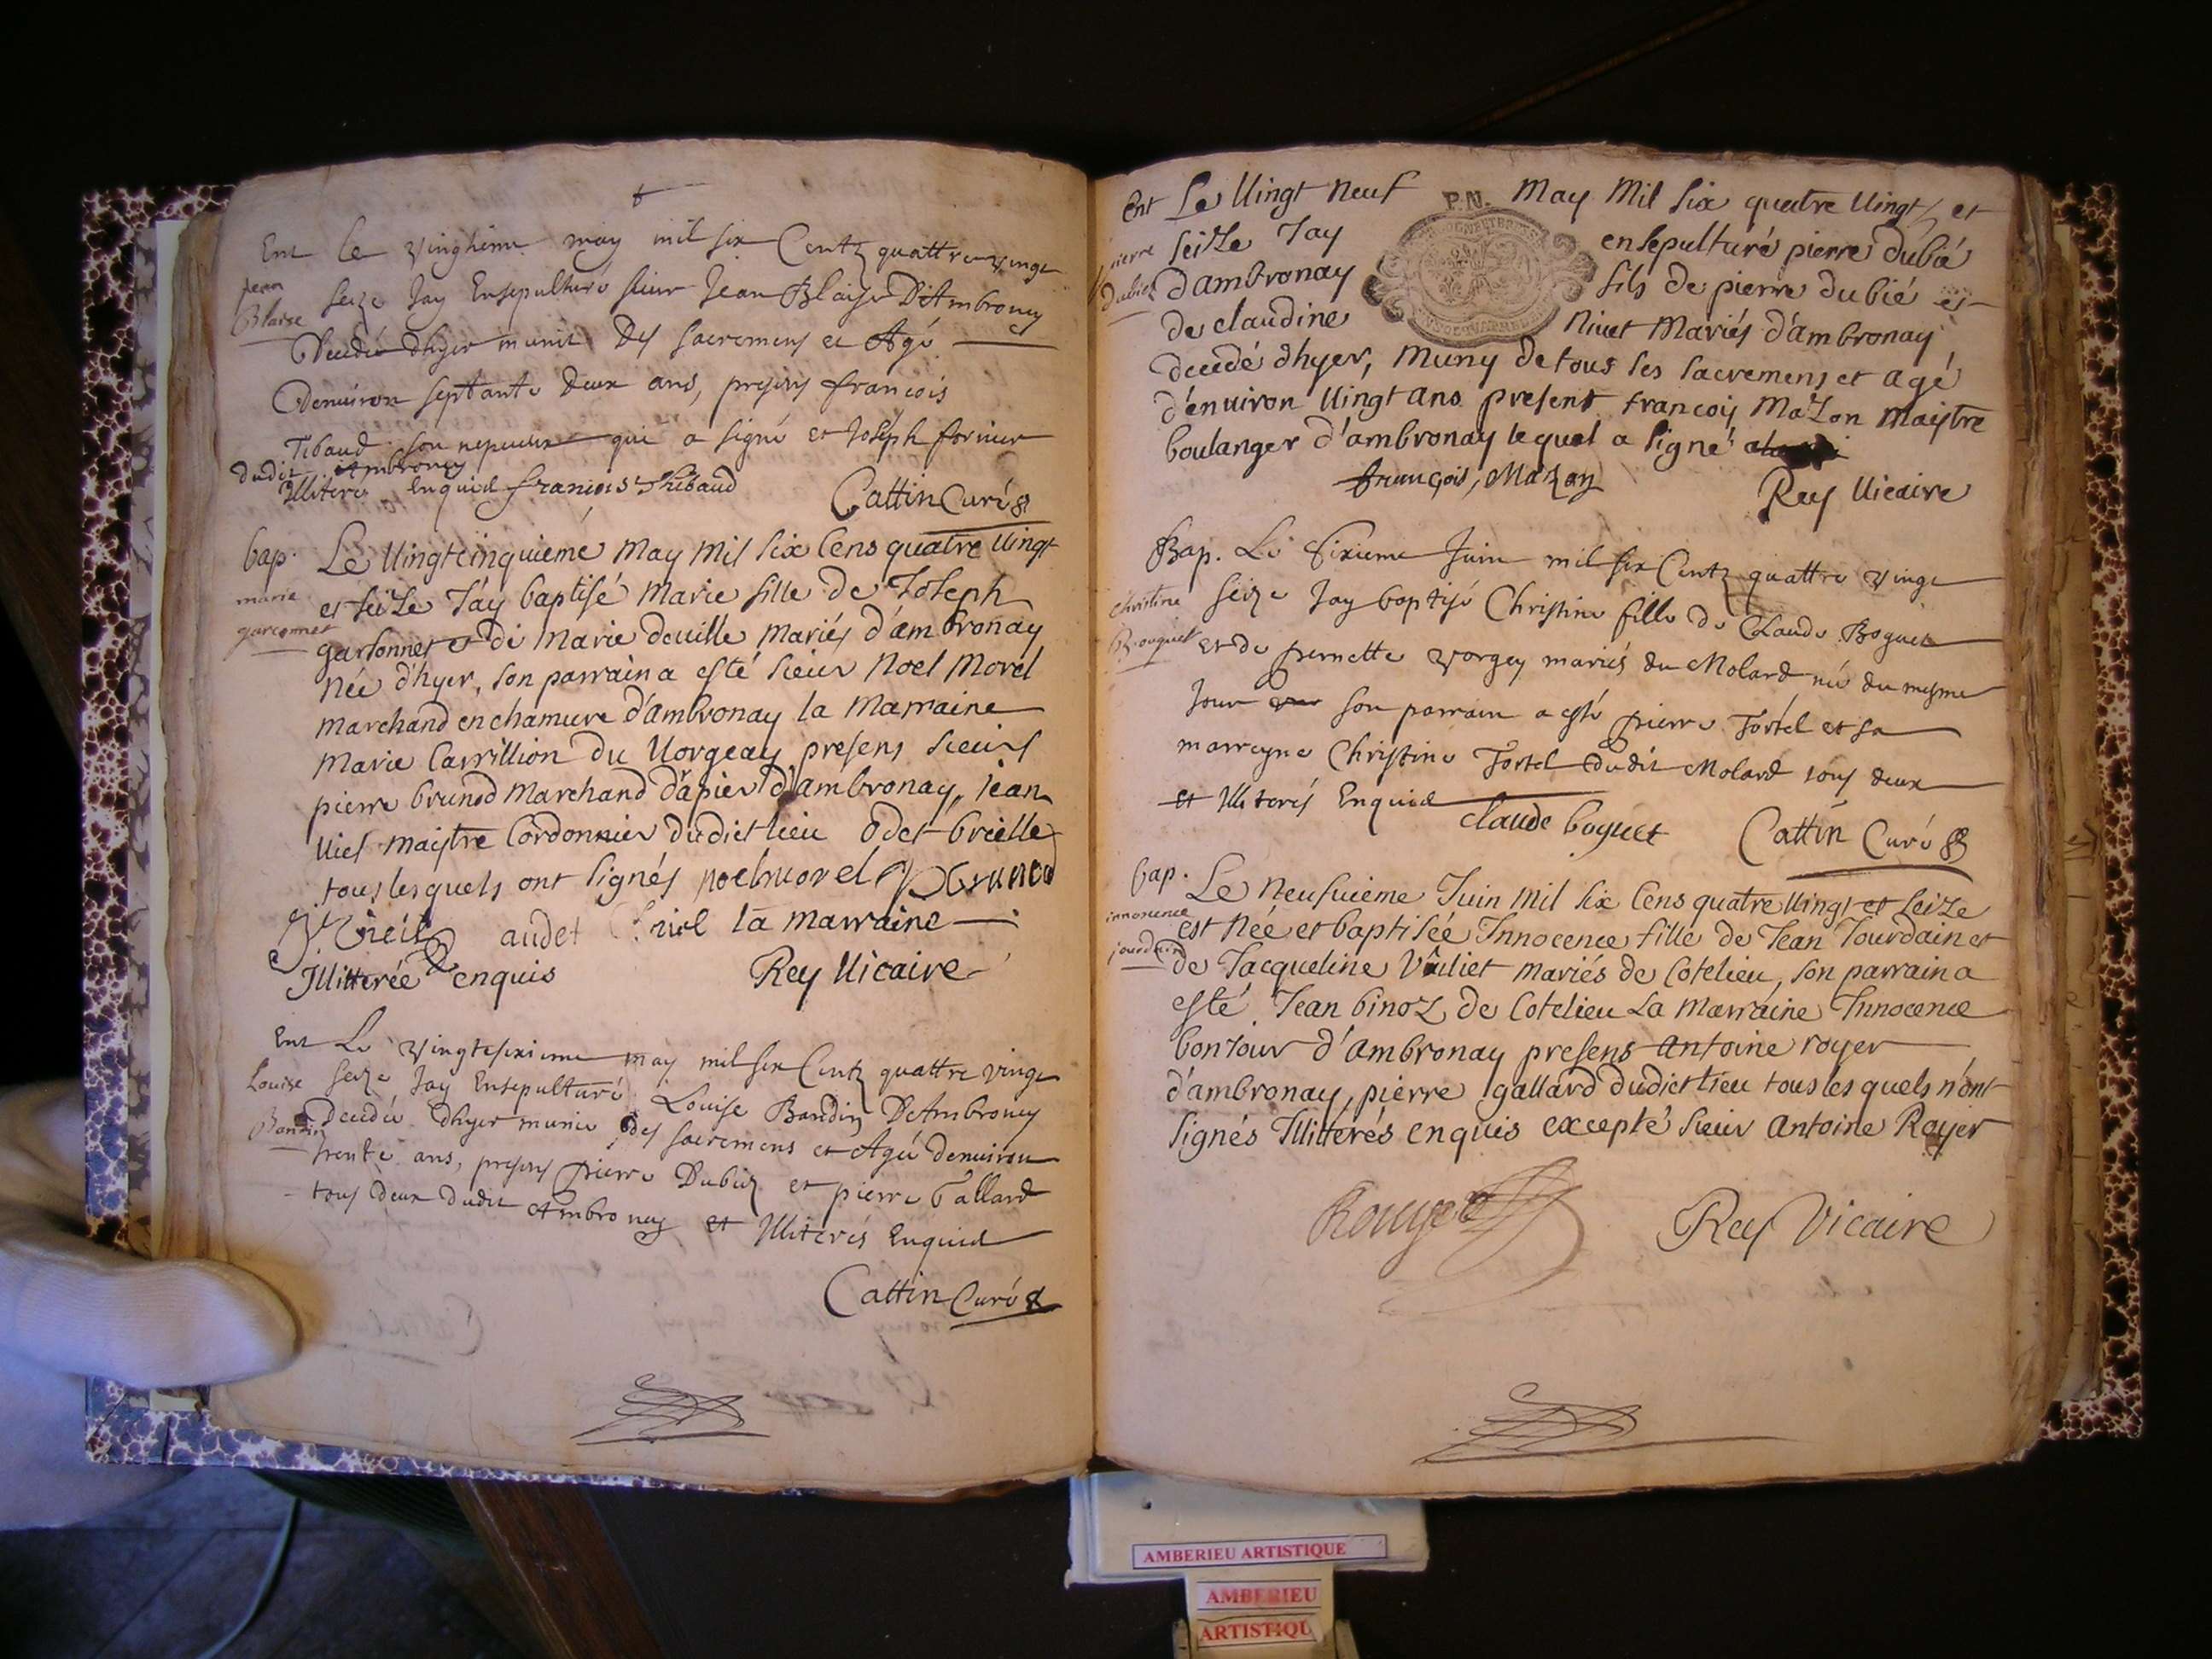 Ent Le vingtieme may mil six Centz quattre vingt
Jean
Blaise
seize Jay Ensepulturé sieur Jean Blaise D'Ambrony
Decedé dhyer munit Des sacremens et Agé
Denuiron septante deux ans, presens francois
Tibaud son nepueux qui a signé et Joseph fornier
dudit Ambroney
Illiteré Enquid francois Thibaud Cattin Curé
bap. Le Vingtcinquiéme May Mil six Cens quatre Vingt
marie
garconnet
et seiZe J'ay baptisé Marie fille de Joseph
garsonnet et de Marie deuille Mariés d'ambronay
Née d'hyer, son parrain a esté sieur Noel Morel
Marchand en chamure d'ambronay la Marraine
Marie Carrillion du Vorgeay presens sieurs
pierre brunod Marchand drapier d'ambronay, Jean
Viel maistre Cordonnier dudict lieu Odet brielle
tous lesquels ont signés noel morel P brunod
J Vieil audet briel la marraine
Illitterée enquis Rey Vicaire
Ent Le vingtesixieme may mil six Centz quattre vingt
Louise
Bandin
seize Jay Ensepulturé Louise Bandin D'Ambrony
Decedée Dhyer munie des sacremens et Agée denuiron
trente ans, presens pierre Dubiez et pierre Gallard
tous deux dudit Ambroney et Illiterés Enquid
Cattin Curé
Ent Le Vingt neuf P.N. May Mil six quatre Vingt et
pierre
dubiez
seiZe J'ay ensepulturé pierre dubié
d'ambronay fils de pierre dubié et
de claudine Niuet Mariés d'ambronay
decedé d'hyer, Muny de tous ses sacremens et agé
d'enuiron Vingt ans present francois MaZon Maistre
boulanger d'ambronay lequel a signé
françois, Mazon Rey Vicaire
Bap. Le sixieme Juin mil six Centz quattre vingt
christine
Broquet
seize Jay baptisé Christine fille de Claude Boguet
et de pernette vorgey mariés du Molard née du mesme
Jour son parrain a esté pierre Tortel et sa
marreyne Christine Tortel dudit Molard tous deux
et Illiterés Enquid claude boguet Cattin Curé
bap. Le Neufuieme Juin Mil six Cens quatre Vingt et seiZe
innocence
jourdain
est Née et baptisée Innocence fille de Jean Jourdain et
de Jacqueline Vuiliet mariés de Cotelieu, son parrain a
esté Jean binoZ de Cotelieu La Marraine Innocence
bonJour d'ambronay presens antoine royer
d'ambronay, pierre gallard dudict lieu tous lesquels n'ont
signés Illitterés enquis excepté sieur antoine Royer
Rouyer Rey Vicaire
AMBERIEU ARTISTIQUE
AMBERIEU
ARTISTIQU